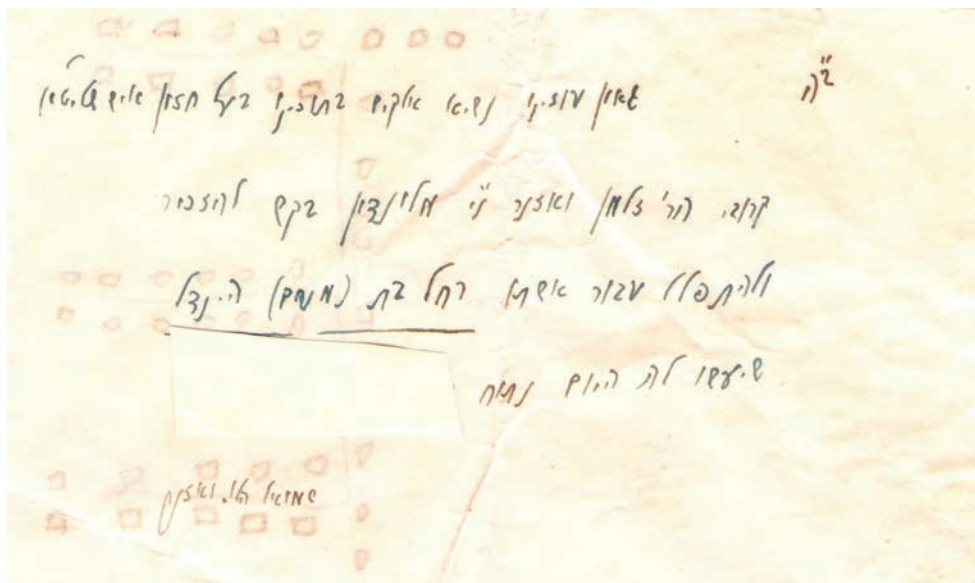 ב"ה גאון עוזינו נשיא אלקים בתוכינו בעל חזון איש שליט"א
קרובי הר' זלמן ואזנר נ"י מלונדון בקש להזכיר
ולהתפלל עבור אשתו רחל בת (מנחם) היינדל
שיעשו לה היום נתוח
שמואל הלוי ואזנר